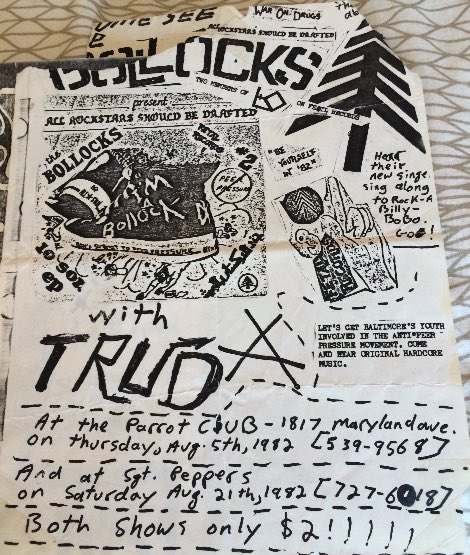 COME SEE
WAR ON DRUGS
ALL ROCKSTARS SHOULD BE DRAFTED
BOLLOCKS
TWO MEMBERS OF
ON FETAL RECORDS
present
ALL ROCKSTARS SHOULD BE DRAFTED
the BOLLOCKS
#2
I AM A BOLLOCK
PEER PRESSURE
"BE YOURSELF IN '82"
HeAR their
new singe.
sing along
to Rock-A
Billy-
BoGo.
GOE!
with
TRUD
LET'S GET BALTIMORE'S YOUTH
INVOLVED IN THE ANTI*PEER
PRESSURE MOVEMENT. COME
AND HEAR ORIGINAL HARDCORE
MUSIC.
At the Parrot CLUB - 1817 Maryland ave.
on thursday, Aug. 5th, 1982 [539-9568]
And at Sgt. Peppers
on Saturday Aug. 21th, 1982 [727-6018]
Both Shows only $2!!!!!